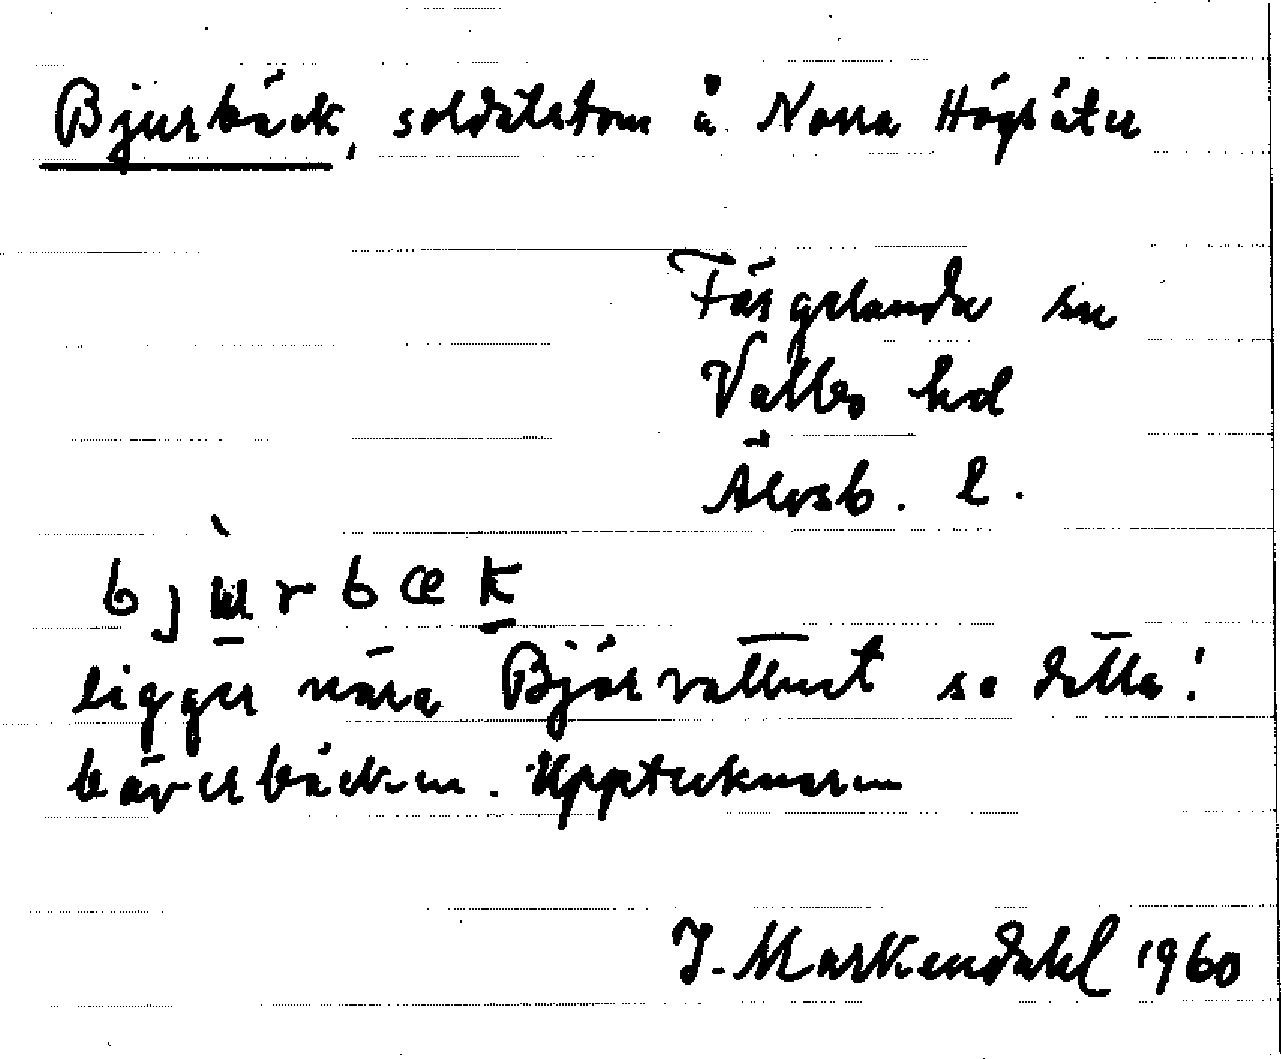 Bjurbäck, soldattorp å Norra Högsäter
Färgelanda sn
Valbo hd
Älvsb. l.
bjùrbæk
ligger nära Björvattnet se detta!
bäverbäcken. Upptecknaren
J. Markendahl 1960